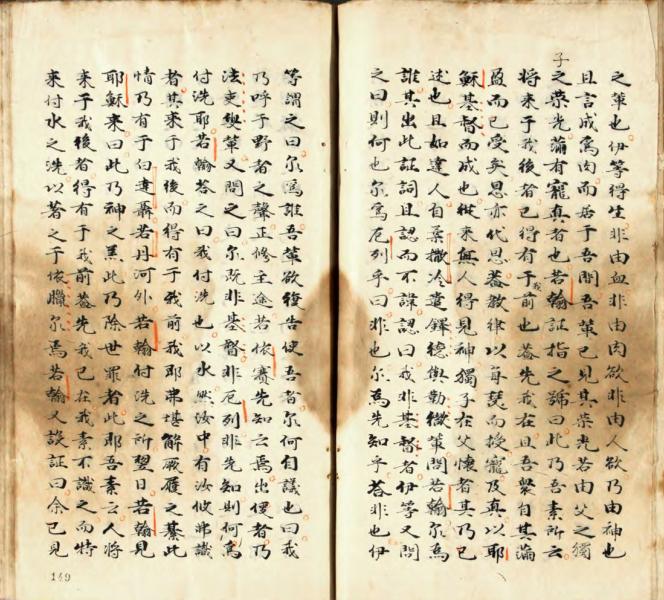 之輩也伊等得生非由血非由肉欲非由人欲乃由神也
且言成為肉而居于吾間吾輩已見其榮光若由父之獨
子之榮光蒲有寵真者也若翰証指之號曰此乃吾素所云
將来于我後者已得有于我前也葢先我在且吾衆自其蒲
盈而已受矣恩亦代恩葢教律以每瑟而授寵及真以耶
穌基督而成也從来無人得見神獨子在父懷者其乃已
述也且如達人自柔撒冷遣鐸德與勒微輩問若翰尔爲
誰其出此証詞且認而不諱認曰我非基督者伊等又問
之曰則何也尔爲厄列乎曰非也尔爲先知乎荅非也伊
等謂之曰尔爲誰吾輩欲復告使吾者尔何自議也曰我
乃呼于野者之聲正修主途若依賽先知云焉出俚者乃
法吏輩又問之曰尔既非基督非厄列非先知則何爲
付洗耶若翰荅之曰我付洗也以水然汝中有汝攸弗識
者其来于我後而得有于我前我耶弗堪解厥履之綦此
情乃有于白達聶若丹河外若翰付洗之所翌日若翰見
耶穌来曰此乃神之羔此乃除世罪者此耶吾素云人將
来于我後者得有于我前葢先我已在我素不識之而特
来付水之洗以著之于依臘尔焉若翰又談証曰余已見
149